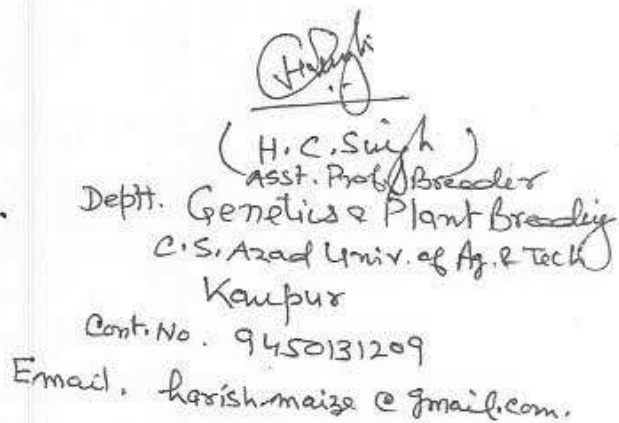 (H.C. Singh)
Asst. Prof/Breeder
Deptt. Genetics & Plant Breedig
C.S. Azad Univ. of Ag. & Tech
Kanpur
Cont. No. 9450131209
Email. harish.maize @ gmail.com.